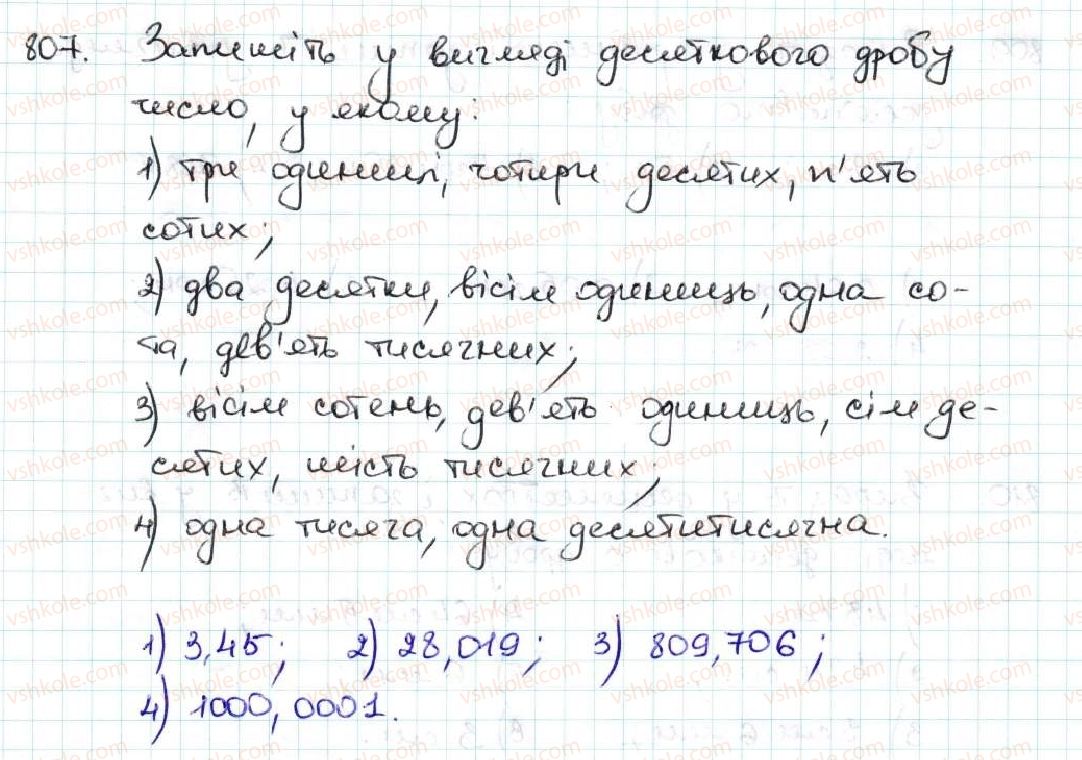 807. Запишіть у вигляді десяткового дробу
число, у якому:
1) три одиниці, чотири десятих, п'ять
сотих;
2) два десятки, вісім одиниць, одна со-
та, дев'ять тисячних;
3) вісім сотень, дев'ять одиниць, сім де-
сятих, шість тисячних;
4) одна тисяча, одна десятитисячна.
1) 3,45; 2) 28,019; 3) 809,706;
4) 1000,0001.